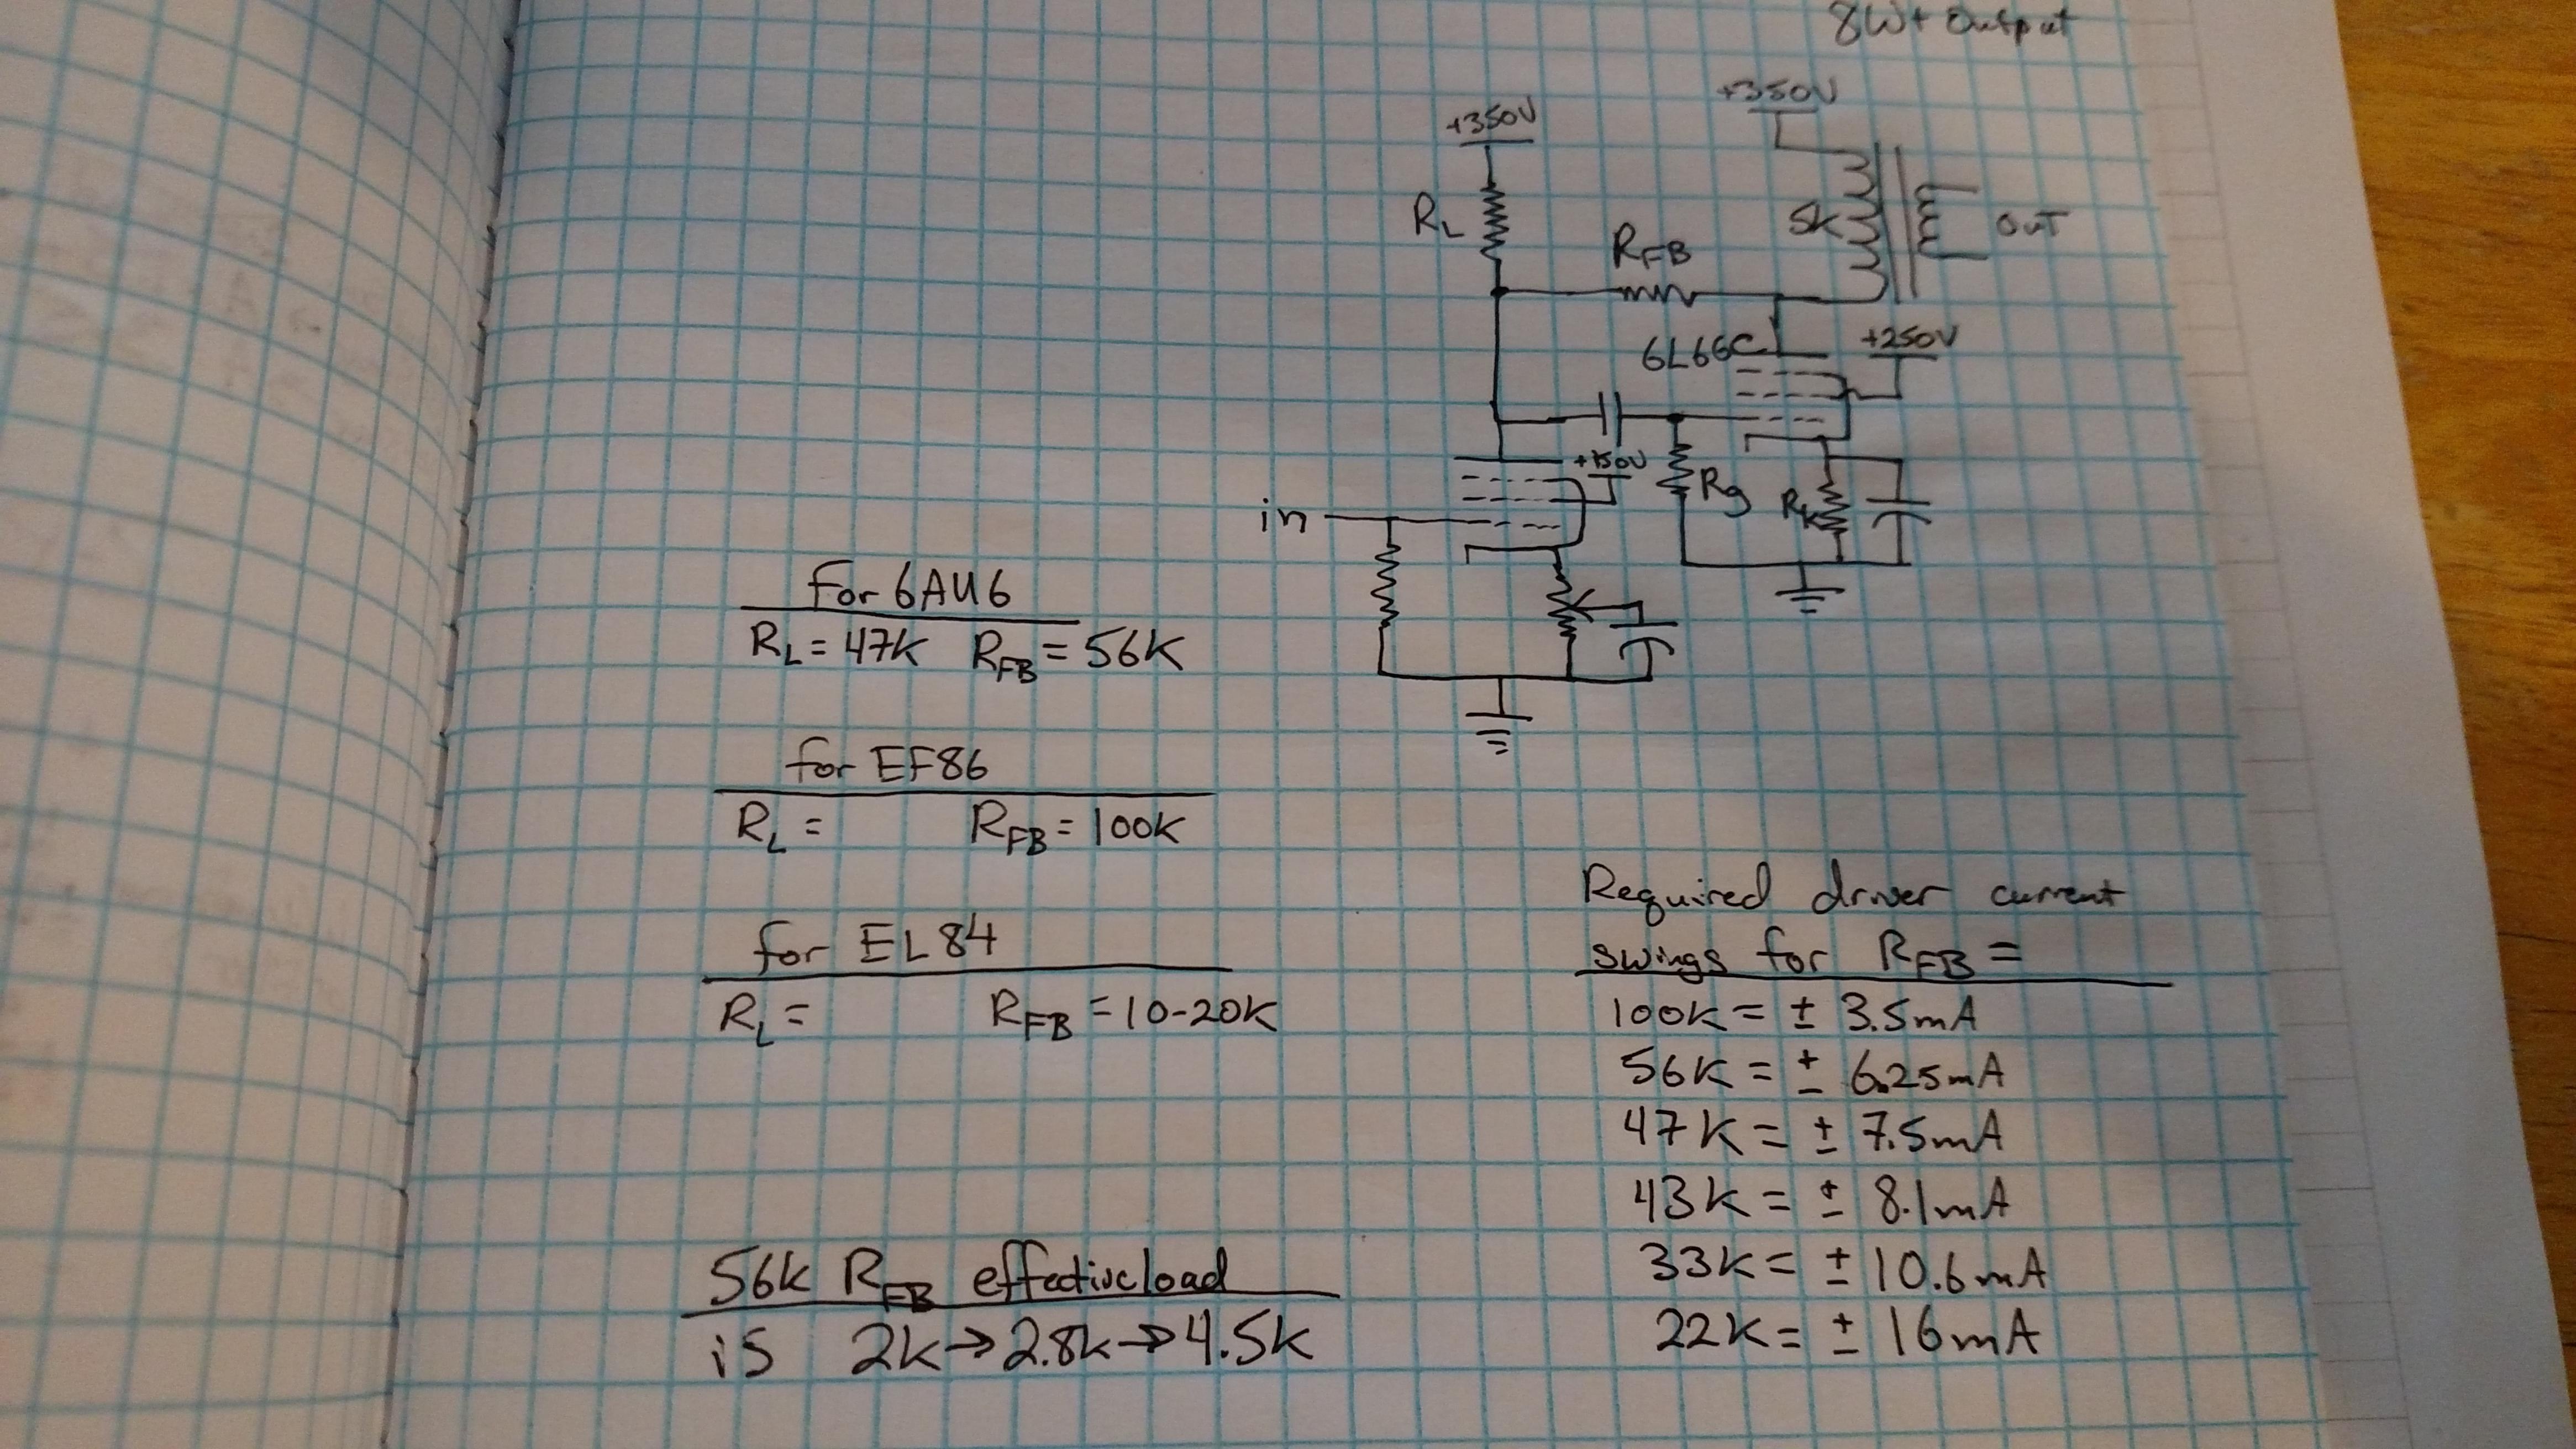 8W+ output
+350V
+350V
RL
RFB
5k
OUT
6L6GC
+250V
+150V
Rg
RK
in
for 6AU6
RL = 47K RFB = 56K
for EF86
RL = RFB = 100K
for EL84
RL = RFB = 10-20K
56K RFB effective load
is 2K → 2.8K → 4.5K
Required driver current
swings for RFB =
100K = ± 3.5mA
56K = ± 6.25mA
47K = ± 7.5mA
43K = ± 8.1mA
33K = ± 10.6mA
22K = ± 16mA